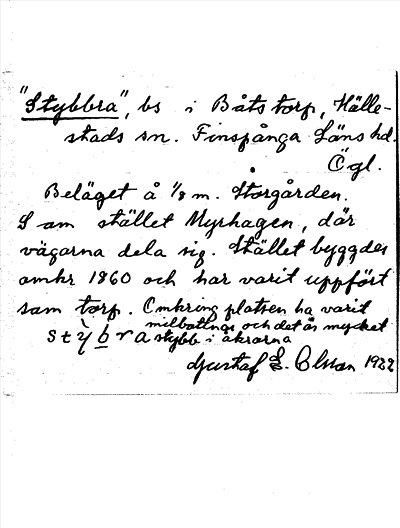 "Stybbra", bs i Båtstorp, Hälle-
stads sn. Finspånga Läns hd.
Ögl.
Beläget å 1/8 m. Storgården.
S om stället Myrhagen, där
vägarna dela sig. Stället byggdes
omkr 1860 och har varit uppfört
som torp. Omkring platsen ha varit
milbottnar och det är mycket
stỳbra stybb i åkrarna
Gustaf E. Olsson 1922